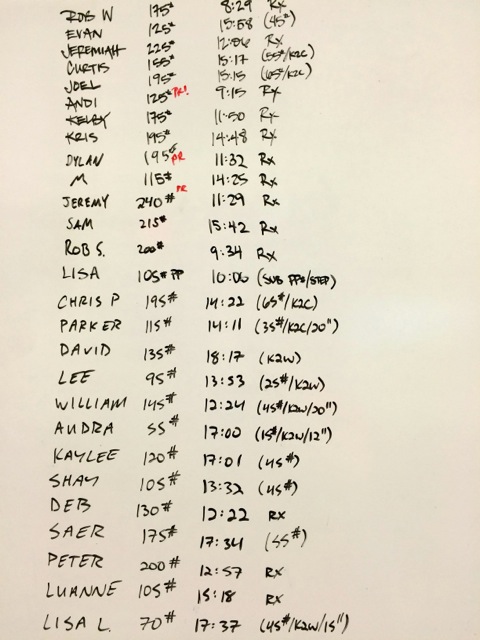 ROB W 175# 8:29 RX
EVAN 125# 15:58 (45#)
JEREMIAH 225# 12:06 RX
CURTIS 155# 15:17 (55#/K2C)
JOEL 195# 15:15 (65#/K2C)
ANDI 125# PR! 9:15 RX
KELBY 175# 11:50 RX
KRIS 195# 14:48 RX
DYLAN 195# PR 11:32 RX
M 115# PR 14:25 RX
JEREMY 240# 11:29 RX
SAM 215# 15:42 RX
ROB S. 200# 9:34 RX
LISA 105# PP 10:06 (SUB PPS/STEP)
CHRIS P 195# 14:22 (65#/K2C)
PARKER 115# 14:11 (35#/K2C/20")
DAVID 135# 18:17 (K2W)
LEE 95# 13:53 (25#/K2W)
WILLIAM 145# 12:24 (45#/K2W/20")
AUDRA 55# 17:00 (15#/K2W/12")
KAYLEE 120# 17:01 (45#)
SHAY 105# 13:32 (45#)
DEB 130# 12:22 RX
SAER 175# 17:34 (55#)
PETER 200# 12:57 RX
LUANNE 105# 15:18 RX
LISA L. 70# 17:37 (45#/K2W/15")